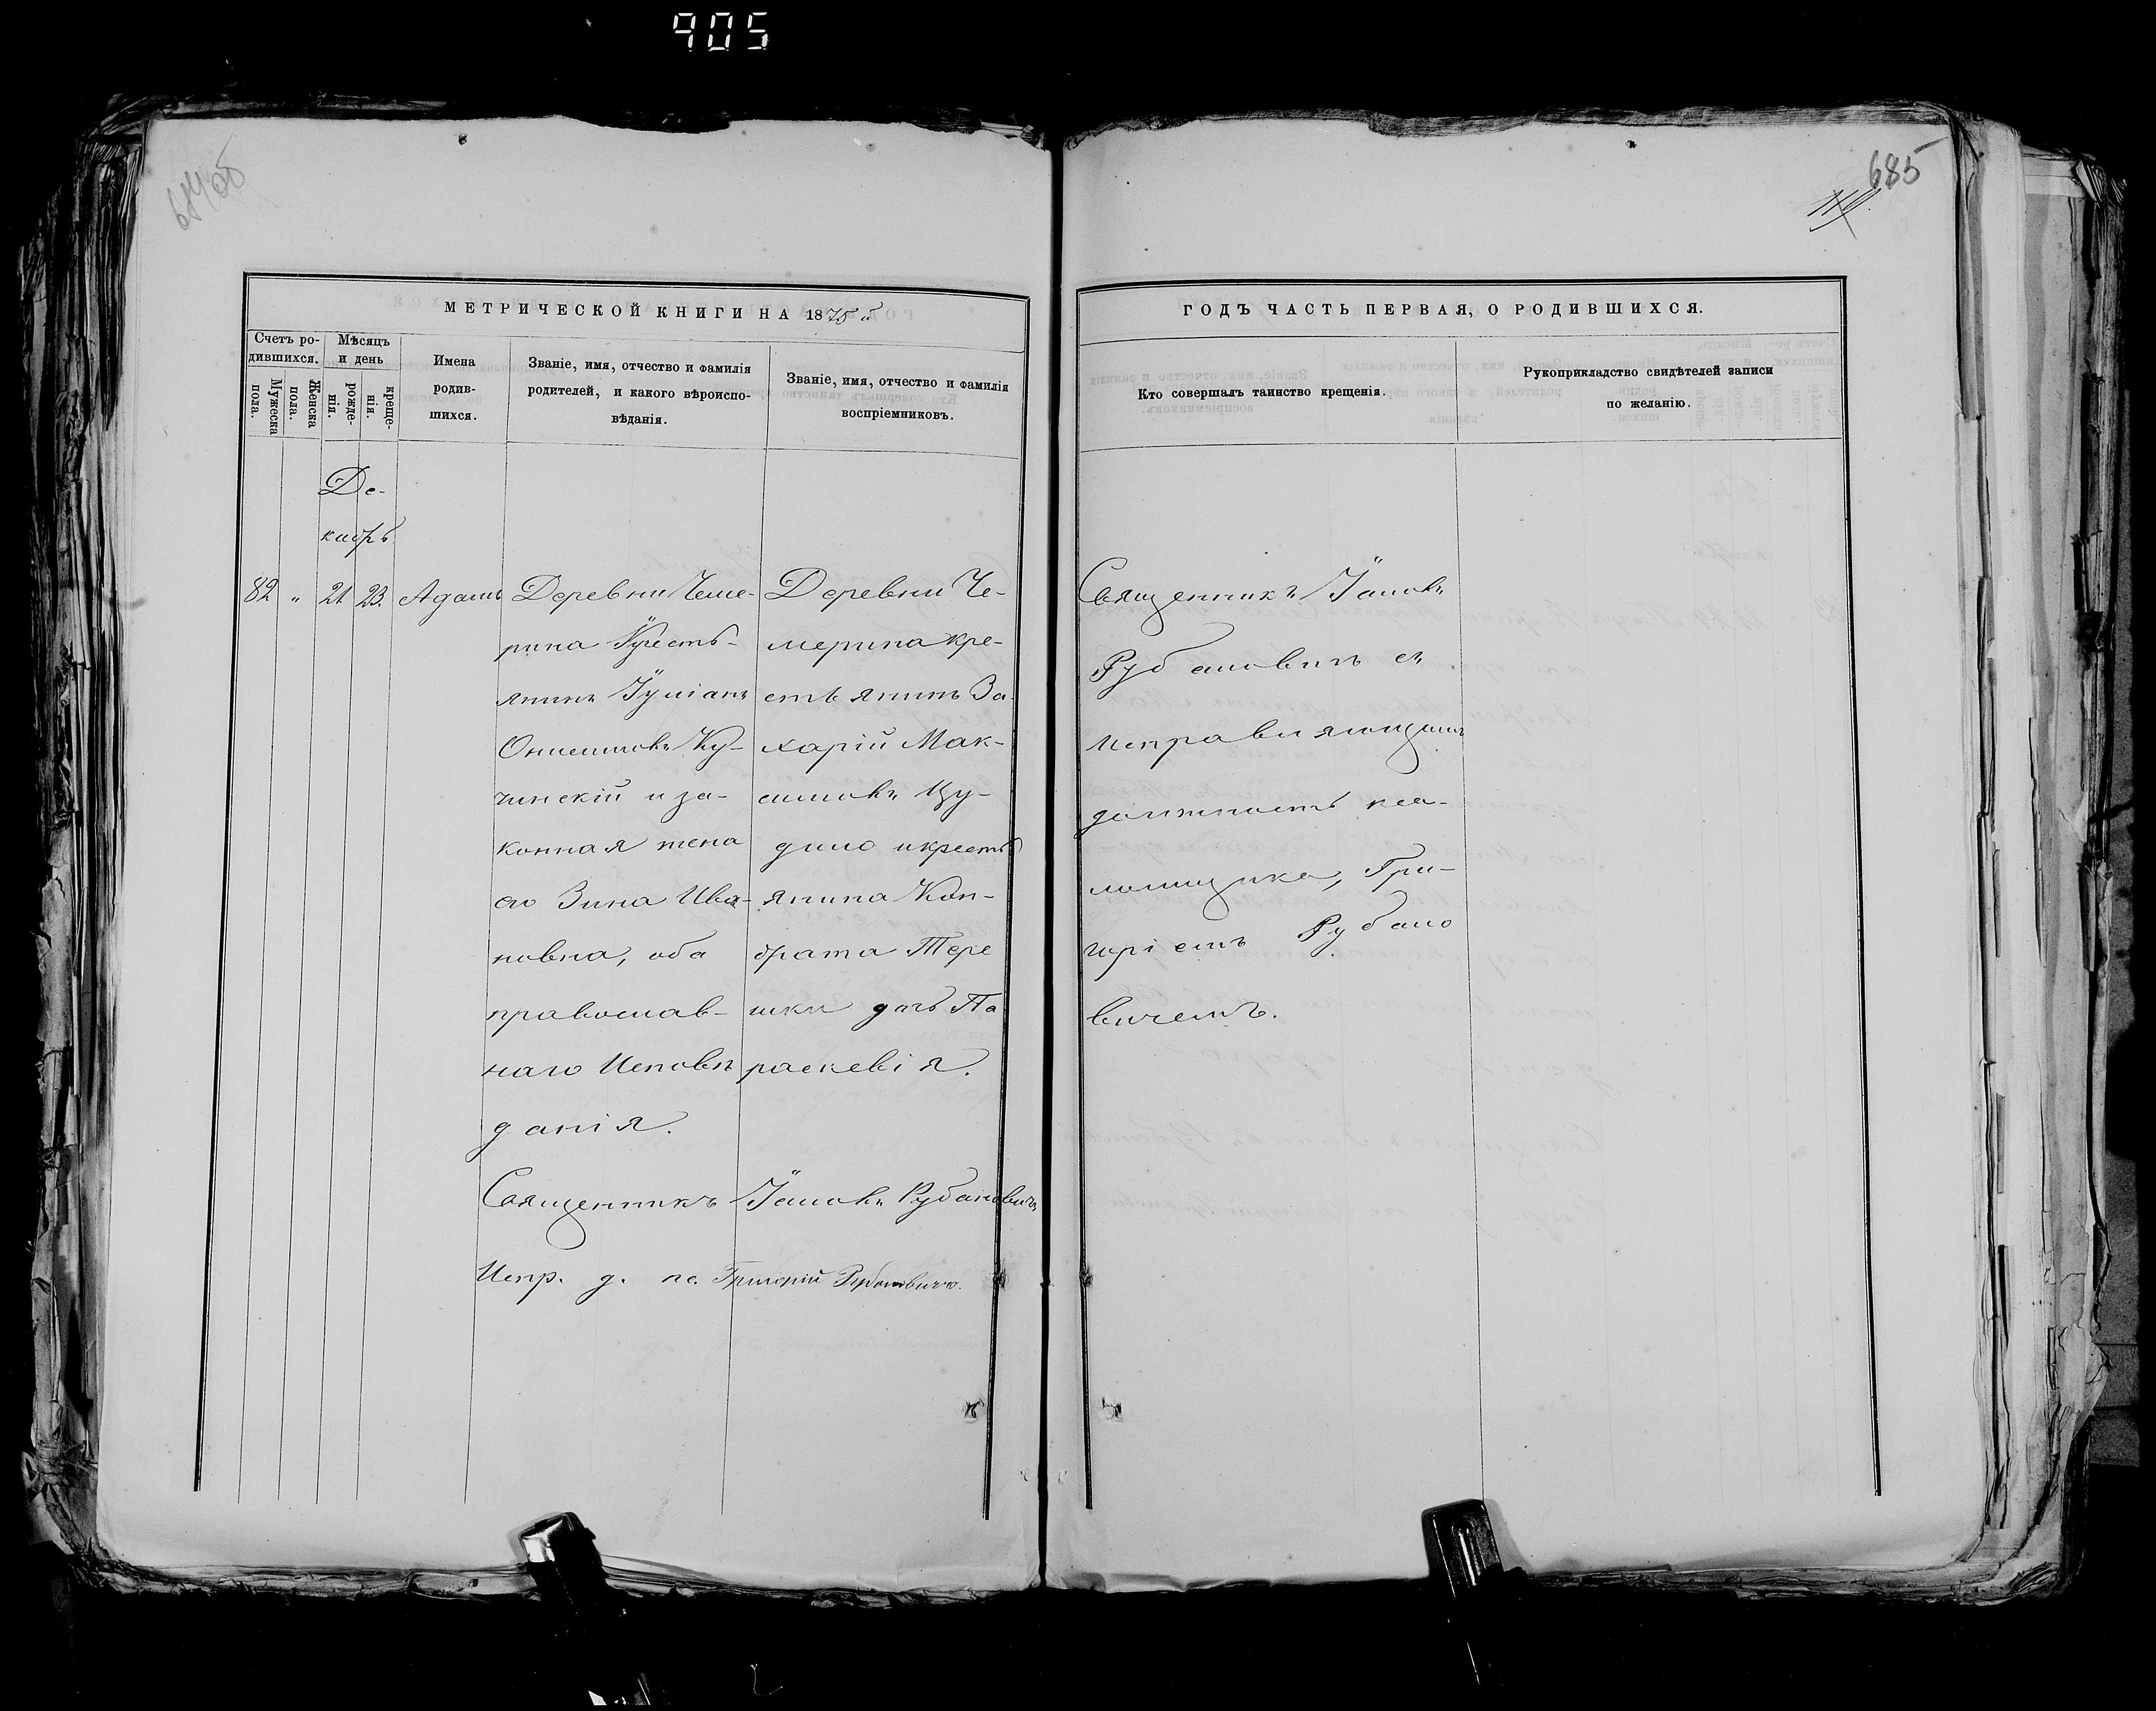 905
684об
685
МЕТРИЧЕСКОЙ КНИГИ НА 1875й
ГОДЪ ЧАСТЬ ПЕРВАЯ, О РОДИВШИХСЯ.
Счетъ ро-
дившихся.
Мужеска
пола.
Женска
пола.
Мѣсяцъ
и день
рожде-
нія.
креще-
нія.
Имена
родив-
шихся.
Званіе, имя, отчество и фамилія
родителей, и какого вѣроиспо-
вѣданія.
Званіе, имя, отчество и фамилія
воспріемниковъ.
Кто совершалъ таинство крещенія.
Рукоприкладство свидѣтелей записи
по желанію.
Де-
кабрь
82 " 21 23. Адамъ
Деревни Чеме-
рина Кресть-
янинъ Іуліанъ
Онисимовъ Ку-
чинскій и за-
конная жена
его Зина Ива-
новна, оба
православ-
наго Исповѣ
данія.
Деревни Че-
мерина кре-
стьянинъ За-
харій Мак-
симовъ Цу-
дило и кресть
янина Кон-
драта Тере
шки дочь Па
раскевія.
Священникъ Іаковъ
Рубановичъ съ
исправляющимъ
должность пса-
ломщика, Гри-
горіемъ Рубано
вичемъ.
Священникъ Іаковъ Рубановичъ
Испр. д. пс. Григорій Рубановичъ.